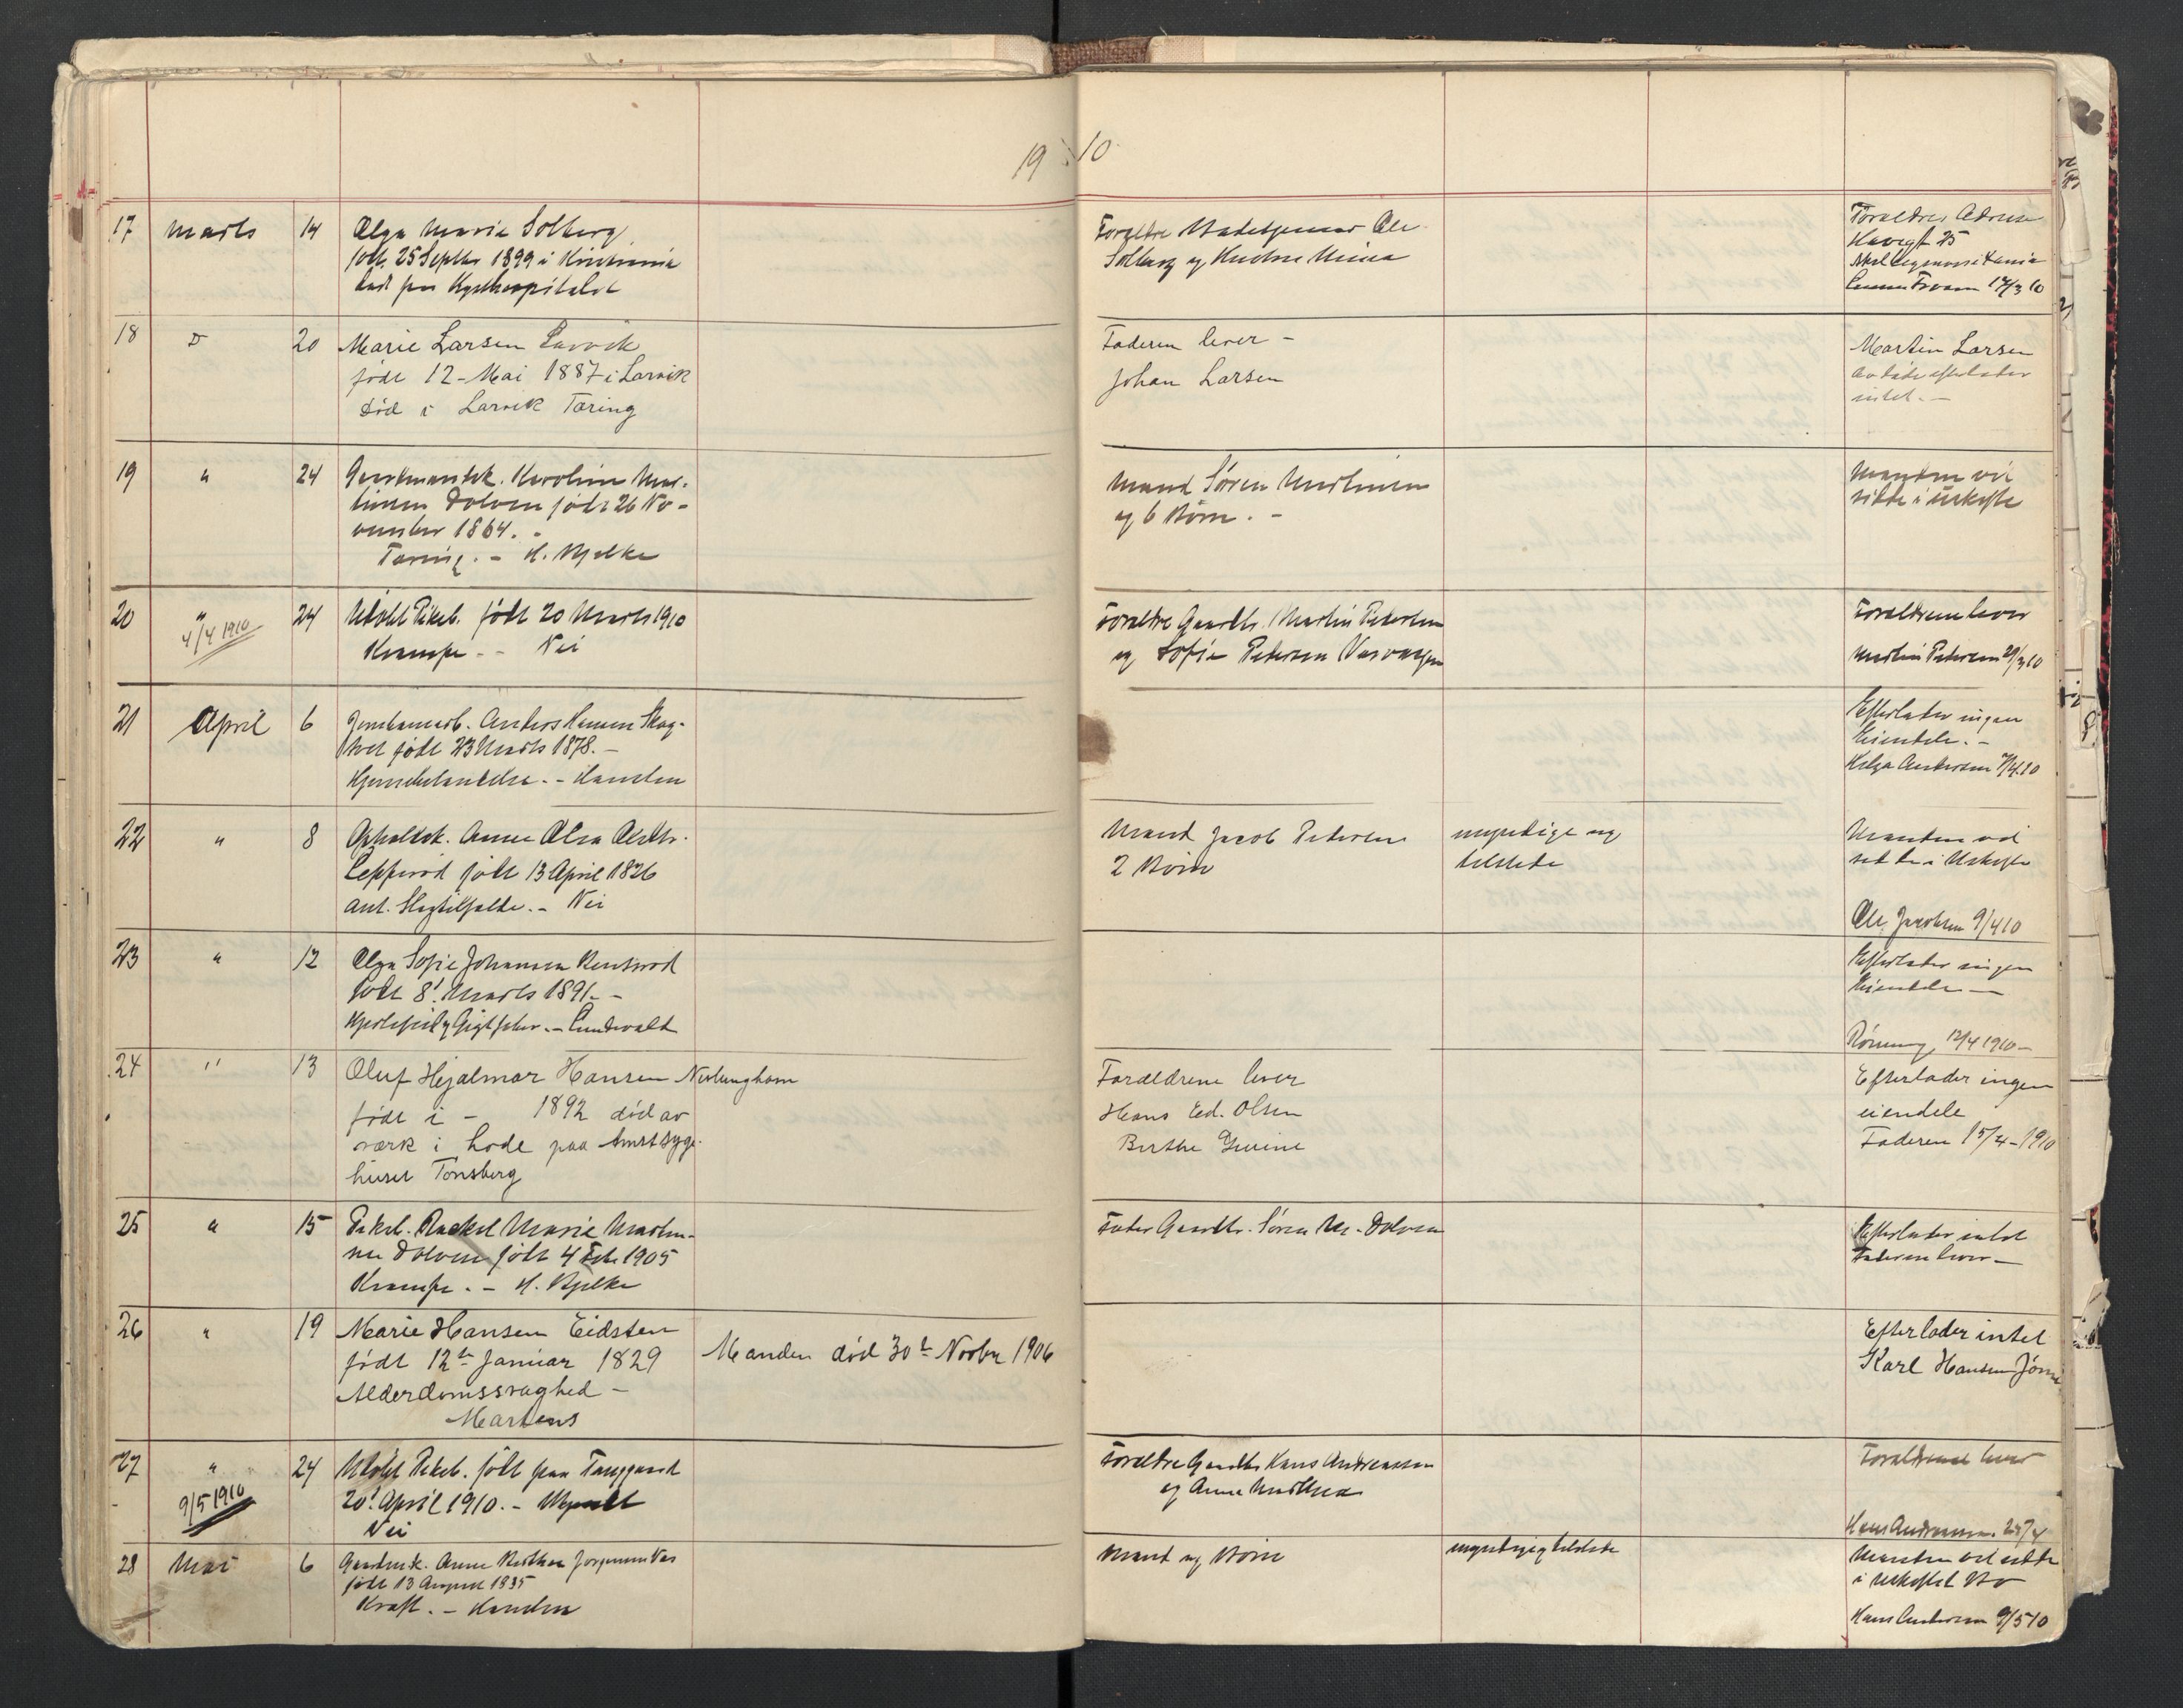 19 10
17 Marts 14 Olga Marie Solberg
født 25 Septbr 1899 i Kristiania
død paa Kysthospitalet
Forældre Ole
Solberg og Hustru Mina
Forældres Adresse
25
Kristiania
17/3 10
18 D 20 Marie Larsen Larvik
føde 12-Mai 1887 i Larvik
Død i Larvik Tæring
Faderen lever -
Johan Larsen
Martin Larsen
Avdøde efterlader
intet. -
19 " 24 Karoline Mar-
tinsen Dolven født 26 No-
vember 1864. -
Tæring. - H. Bjelke
Mand Søren Martinsen
og 6 Børn. -
Manden vil
sidde i Uskifte
20 " 24 Udøbt Pikeb. født 20 Marts 1910
4/4 1910
Krampe - - Nei
Forældre Gaardbr. Martin Pedersen
og Sofie Pedersen
Forældrene lever
Martin Pedersen 29/3 10
21 April 6 Anders Hansen Skag-
født 23 Marts 1878. -
- Kanden
Efterlader ingen
Eiendele. -
Helga Andersen 7/4.10
22 " 8 Anne Olea Olsdtr.
født 13 April 1826
ant. Slagtilfælde. - Nei
Mand Jacob Pedersen
2 Børn
myndige og
tilstede
Manden vil
sidde i Uskifte
Ole Jacobsen 9/4 10
23 " 12 Olga Sofie Johansen
født 8' Marts 1891. -
Hjertefeil og Gigtfeber. - Lundwaldt
Efterlader ingen
Eiendele -
Rønning, 12/4 1910 -
24 " 13 Oluf Hjalmar Hansen Nerlunghavn
føde i - 1892 død av
værk i hode paa Amtssyge-
huset Tønsberg
Forældrene lever
Hans Ed. Olsen
Birthe
Efterlader ingen
eiendele
Faderen 15/4 - 1910
25 " 15 Pikeb. Rackel Marie Martin-
sen Dolven født 4 Feb 1905
Krampe. - H. Bjelke
Fader Gaardbr. Søren M. Dolven
Efterlader intet
Faderen lever -
26 " 19 Marie Hansen Eidsten
født 12te Januar 1829
Alderdomssvaghed -
Martens
Manden død 30te Novbr 1906
Efterlader intet
Karl Hansen
27 " 24 Udøbt Pikeb. født paa
9/5 1910
20' April 1910. -
Nei
Forældre Gaardbr Hans Andreassen
og Anne Mathea
Forældrene lever
Hans Andreassen. 25/4
28 Mai 6 Gaardmk. Anne
født 13 August 1835
Kræft. - Kanden
Mand og Børn
myndige tilstede
Manden vil sidde
i Uskiftet Bo
Hans Andersen 9/5 10